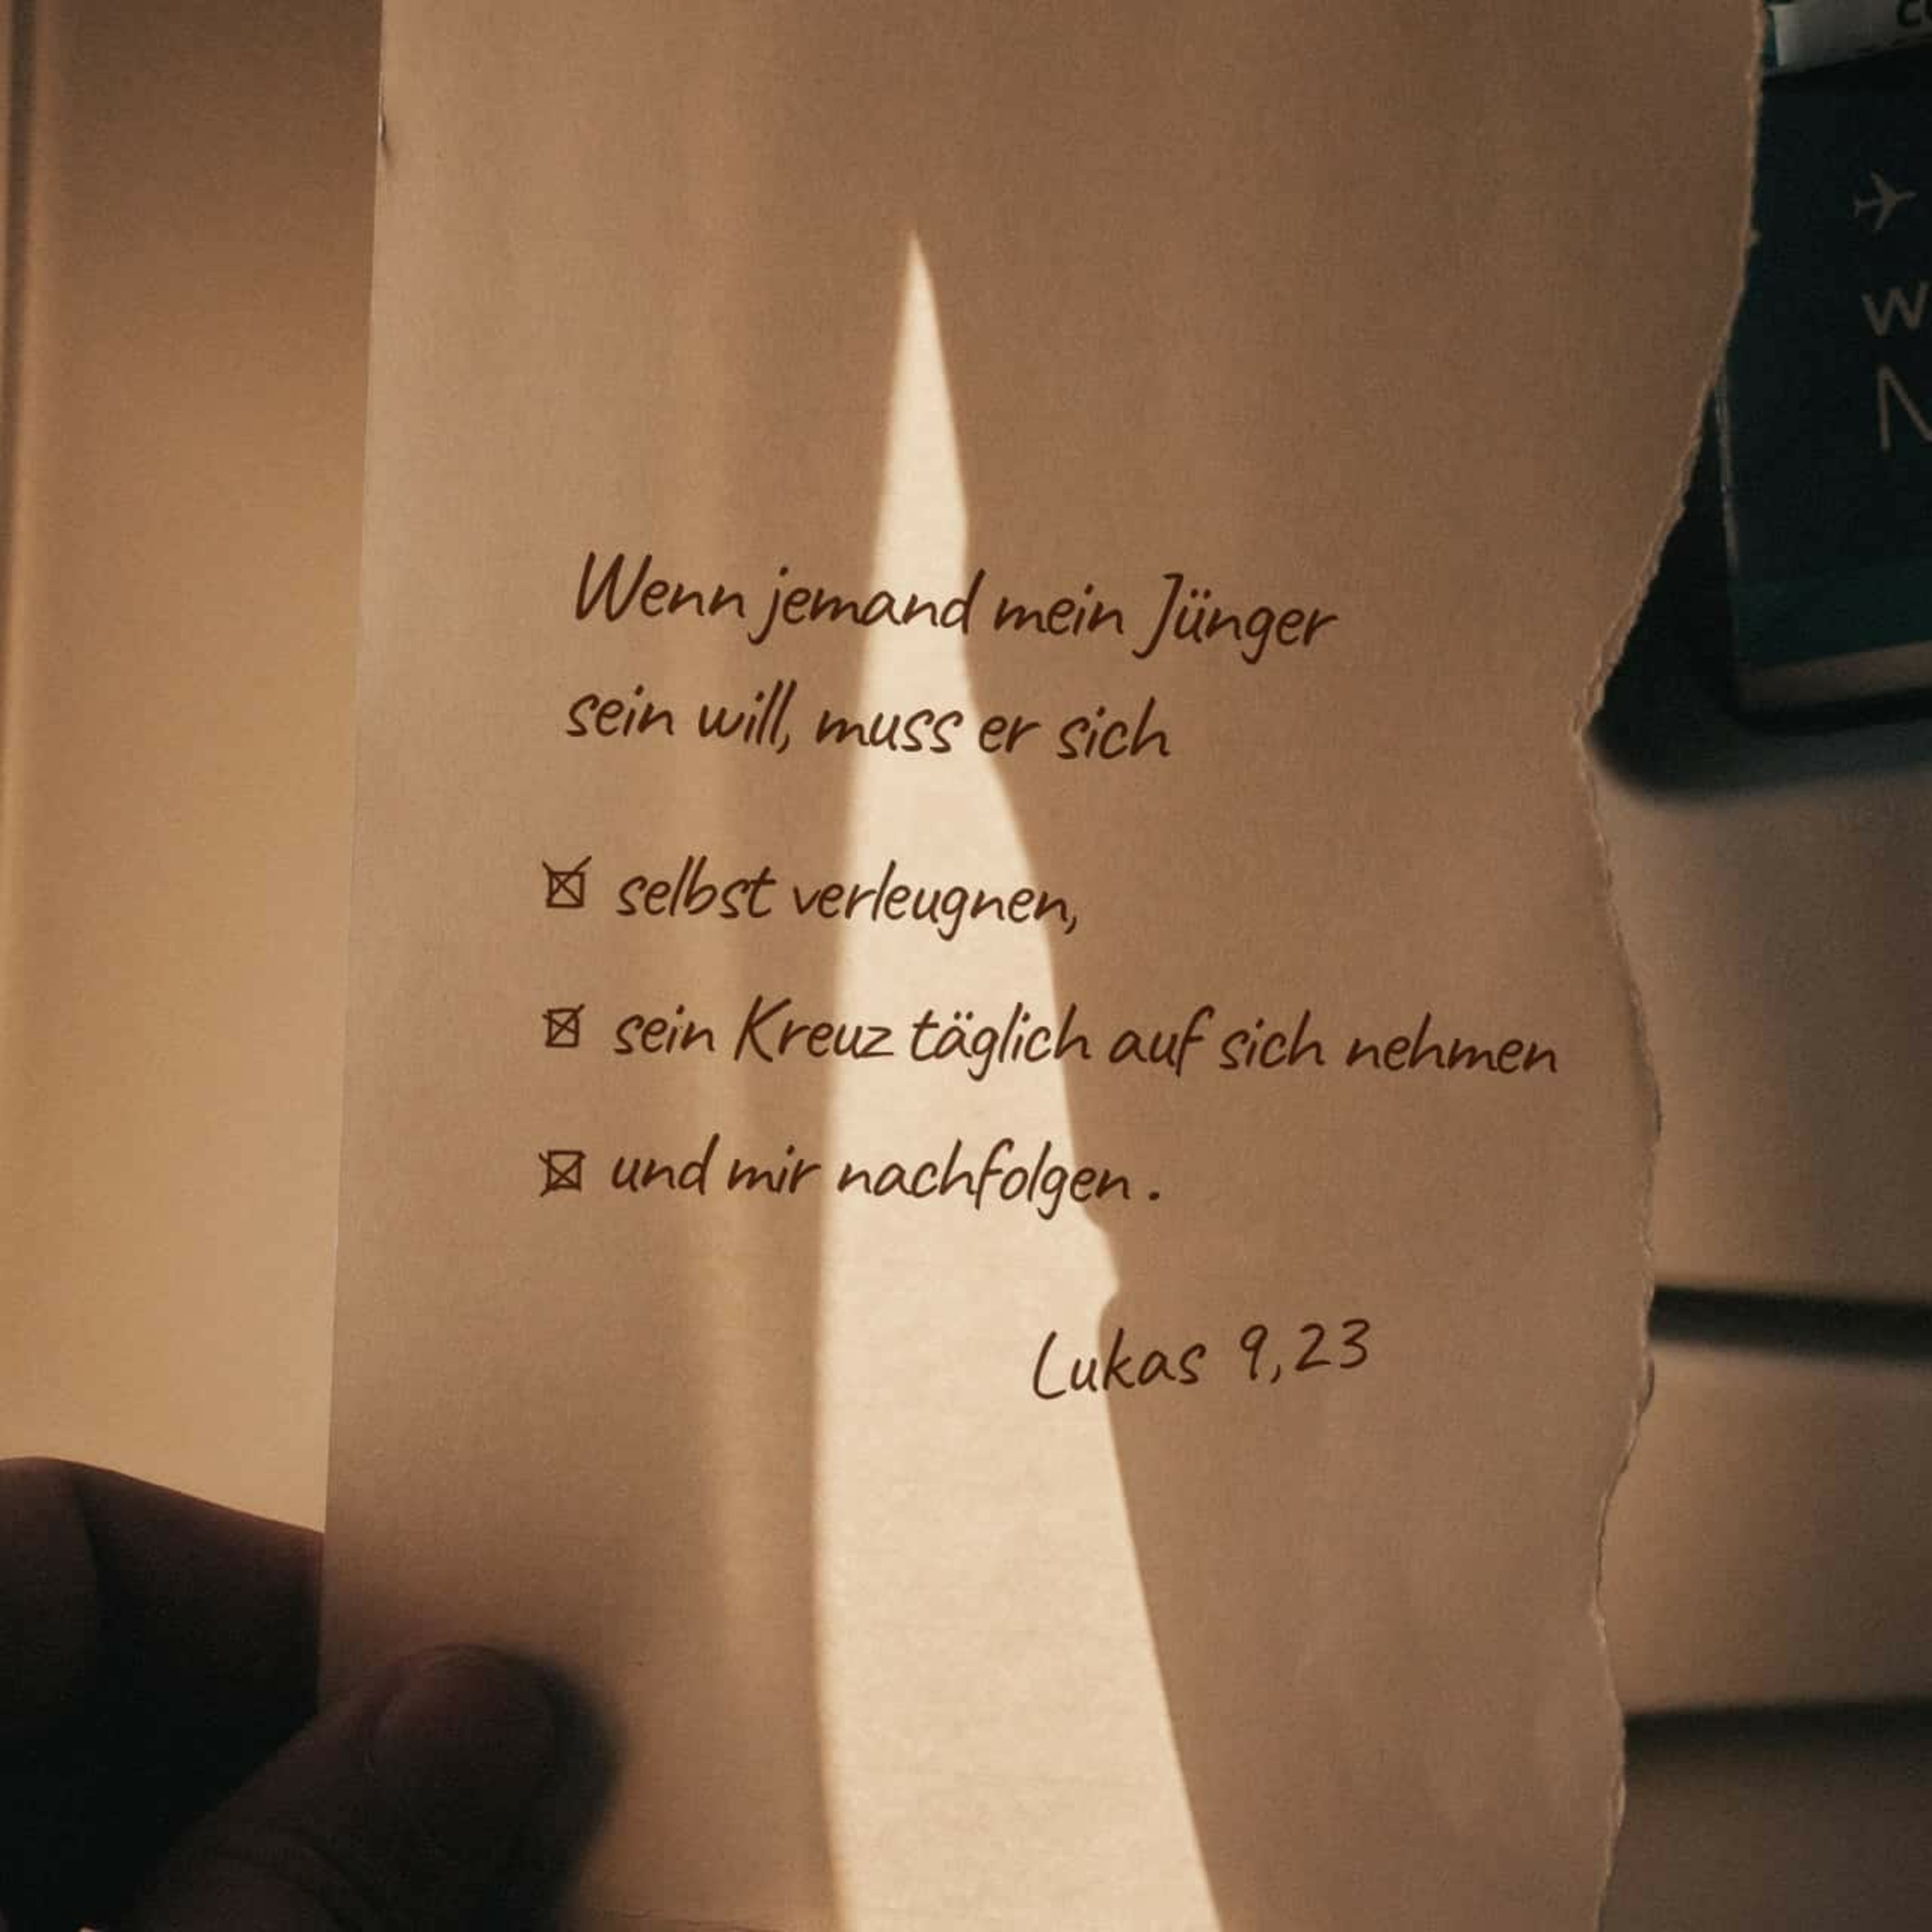 Wenn jemand mein Jünger
sein will, muss er sich
☒ selbst verleugnen,
☒ sein Kreuz täglich auf sich nehmen
☒ und mir nachfolgen.
Lukas 9,23